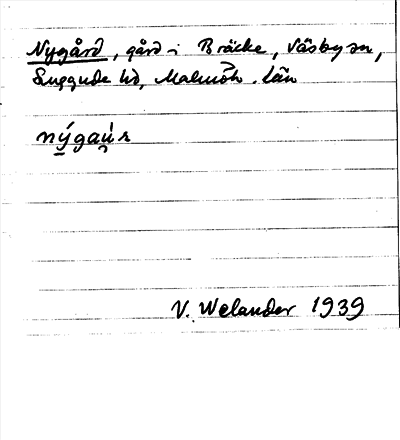 Nygård, gård i Bräcke, Väsby sn,
Luggude hd, Malmöh. län
nýgaú̯r
V. Welander 1939